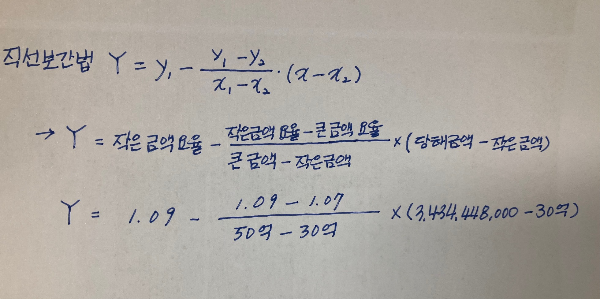 직선보간법 Y = y₁ - (y₁ - y₂)/(x₁ - x₂) · (x - x₂)
→ Y = 작은금액요율 - (작은금액 요율 - 큰금액 요율)/(큰금액 - 작은금액) × (당해금액 - 작은금액)
Y = 1.09 - (1.09 - 1.07)/(50억 - 30억) × (3,434,448,000 - 30억)